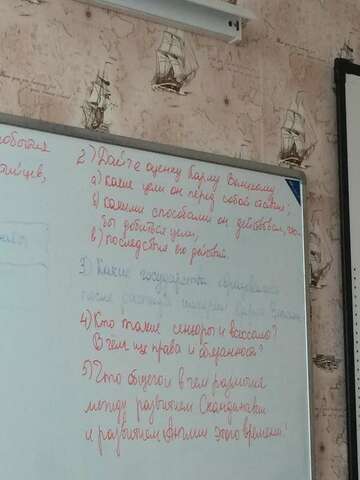 события
2) Дайте оценку Карлу Великому
а) какие цели он перед собой ставил;
б) какими способами он действовал,
бы добиться цели,
в) последствия его действий.
3) Какие государства образовались
после распада империи Карла
4) Кто такие сеньоры и вассалы?
В чём их права и обязанности?
5) Что общего и в чем различия
между развитием Скандинавии
и развитием Англии этого времени?